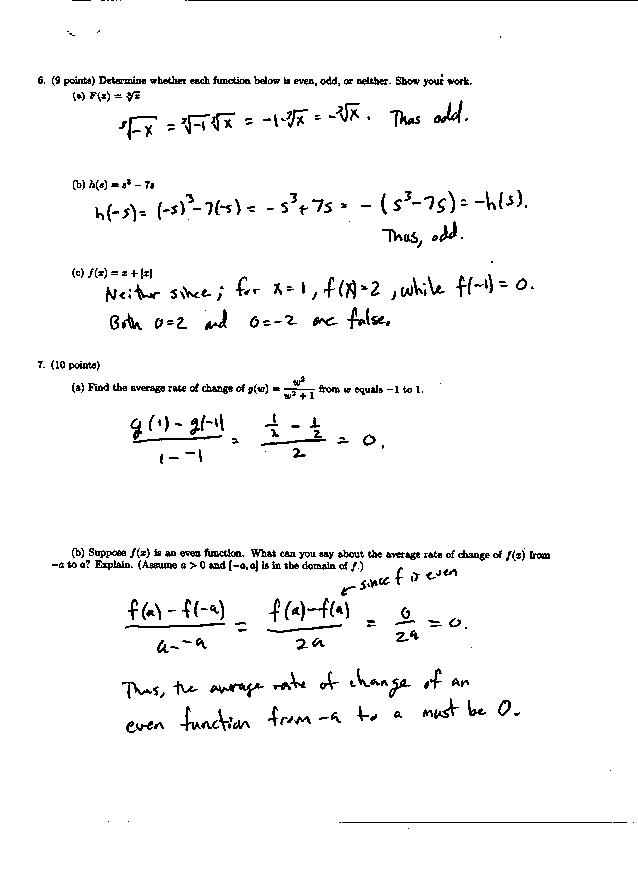 6. (9 points) Determine whether each function below is even, odd, or neither. Show your work.
(a) F(x) = ∛x
∛-x = ∛-1 ∛x = -1·∛x = -∛x. Thus odd.
(b) h(s) = s³ − 7s
h(-s) = (-s)³ - 7(-s) = - s³ + 7s = - (s³ - 7s) = -h(s).
Thus, odd.
(c) f(x) = x + |x|
Neither since; for x = 1, f(x) = 2, while f(-1) = 0.
Both 0=2 and 0=-2 are false.
7. (10 points)
(a) Find the average rate of change of g(w) = w²/(w² + 1) from w equals −1 to 1.
(g(1) - g(-1))/(1 - -1) = (1/2 - 1/2)/2 = 0.
(b) Suppose f(x) is an even function. What can you say about the average rate of change of f(x) from
−a to a? Explain. (Assume a > 0 and [−a, a] is in the domain of f.)
← since f is even
(f(a) - f(-a))/(a - -a) = (f(a) - f(a))/2a = 0/2a = 0.
Thus, the average rate of change of an
even function from -a to a must be 0.